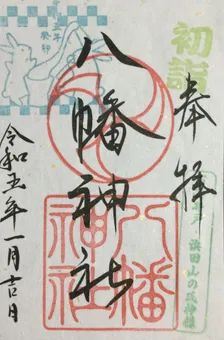 初詣
奉拝
八幡神社
令和五年一月吉日
癸卯
八幡神社
浜田山の氏神様